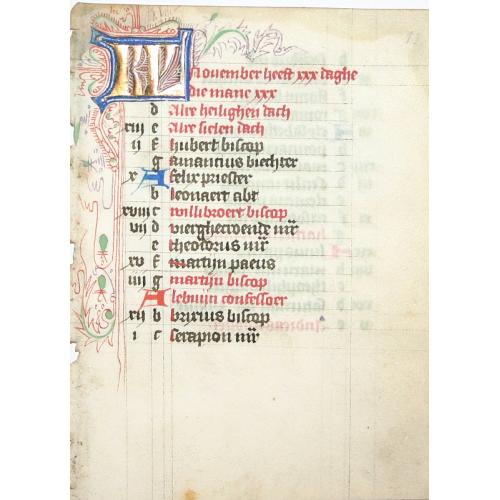 KL November heeft xxx daghe
die mane xxx
d Alre heilighen dach
xiij e Alre sielen dach
ij f hubert biscop
g amancius biechter
x A felix priester
b leonaert abt
xviij c willibroert biscop
vij d vierghecroende mr̄
e theodorus mr̄
xv f martijn paeus
iiij g martijn biscop
A lebuijn confessoer
xij b brixius biscop
i c serapion mr̄